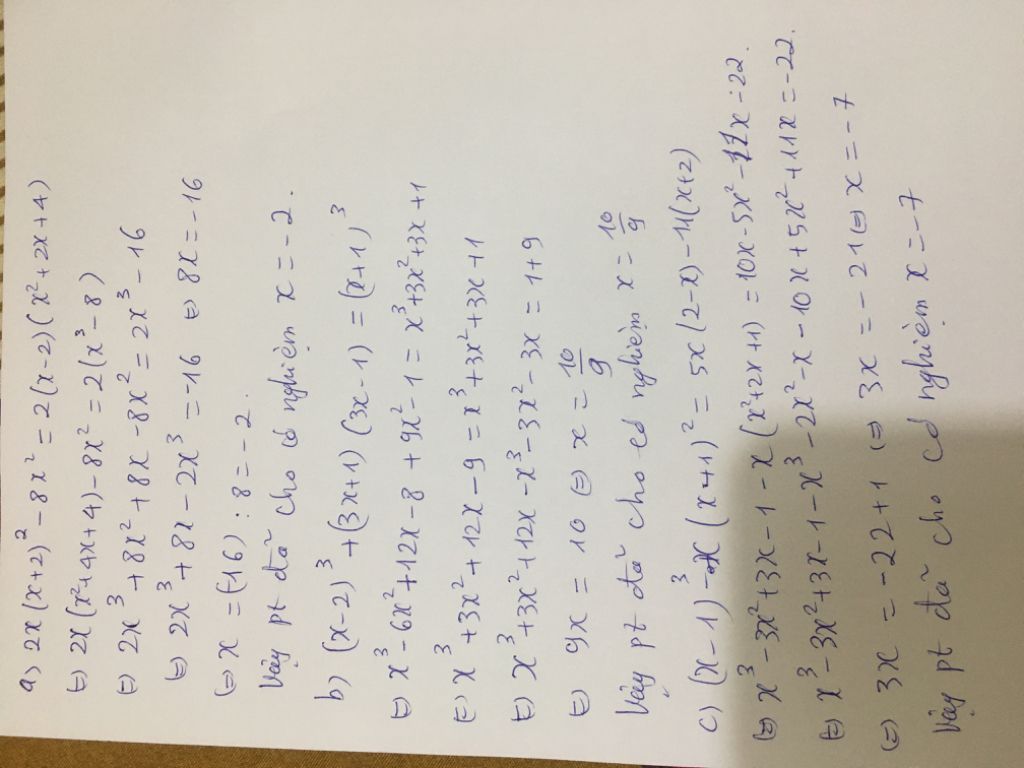 a) 2x(x+2)² - 8x² = 2(x-2)(x²+2x+4)
⇔ 2x(x²+4x+4) - 8x² = 2(x³-8)
⇔ 2x³ + 8x² + 8x - 8x² = 2x³ - 16
⇔ 2x³ + 8x - 2x³ = -16 ⇔ 8x = -16
⇔ x = (-16) : 8 = -2.
Vậy pt đã cho có nghiệm x = -2.
b) (x-2)³ + (3x+1)(3x-1) = (x+1)³
⇔ x³ - 6x² + 12x - 8 + 9x² - 1 = x³+3x²+3x+1
⇔ x³ + 3x² + 12x - 9 = x³ + 3x² + 3x + 1
⇔ x³ + 3x² + 12x - x³ - 3x² - 3x = 1 + 9
⇔ 9x = 10 ⇔ x = 10/9
Vậy pt đã cho có nghiệm x = 10/9
c) (x-1)³ - x(x+1)² = 5x(2-x) - 11(x+2)
⇔ x³ - 3x² + 3x - 1 - x(x²+2x+1) = 10x - 5x² - 11x - 22.
⇔ x³ - 3x² + 3x - 1 - x³ - 2x² - x - 10x + 5x² + 11x = -22.
⇔ 3x = -22 + 1 ⇔ 3x = -21 ⇔ x = -7
Vậy pt đã cho có nghiệm x = -7